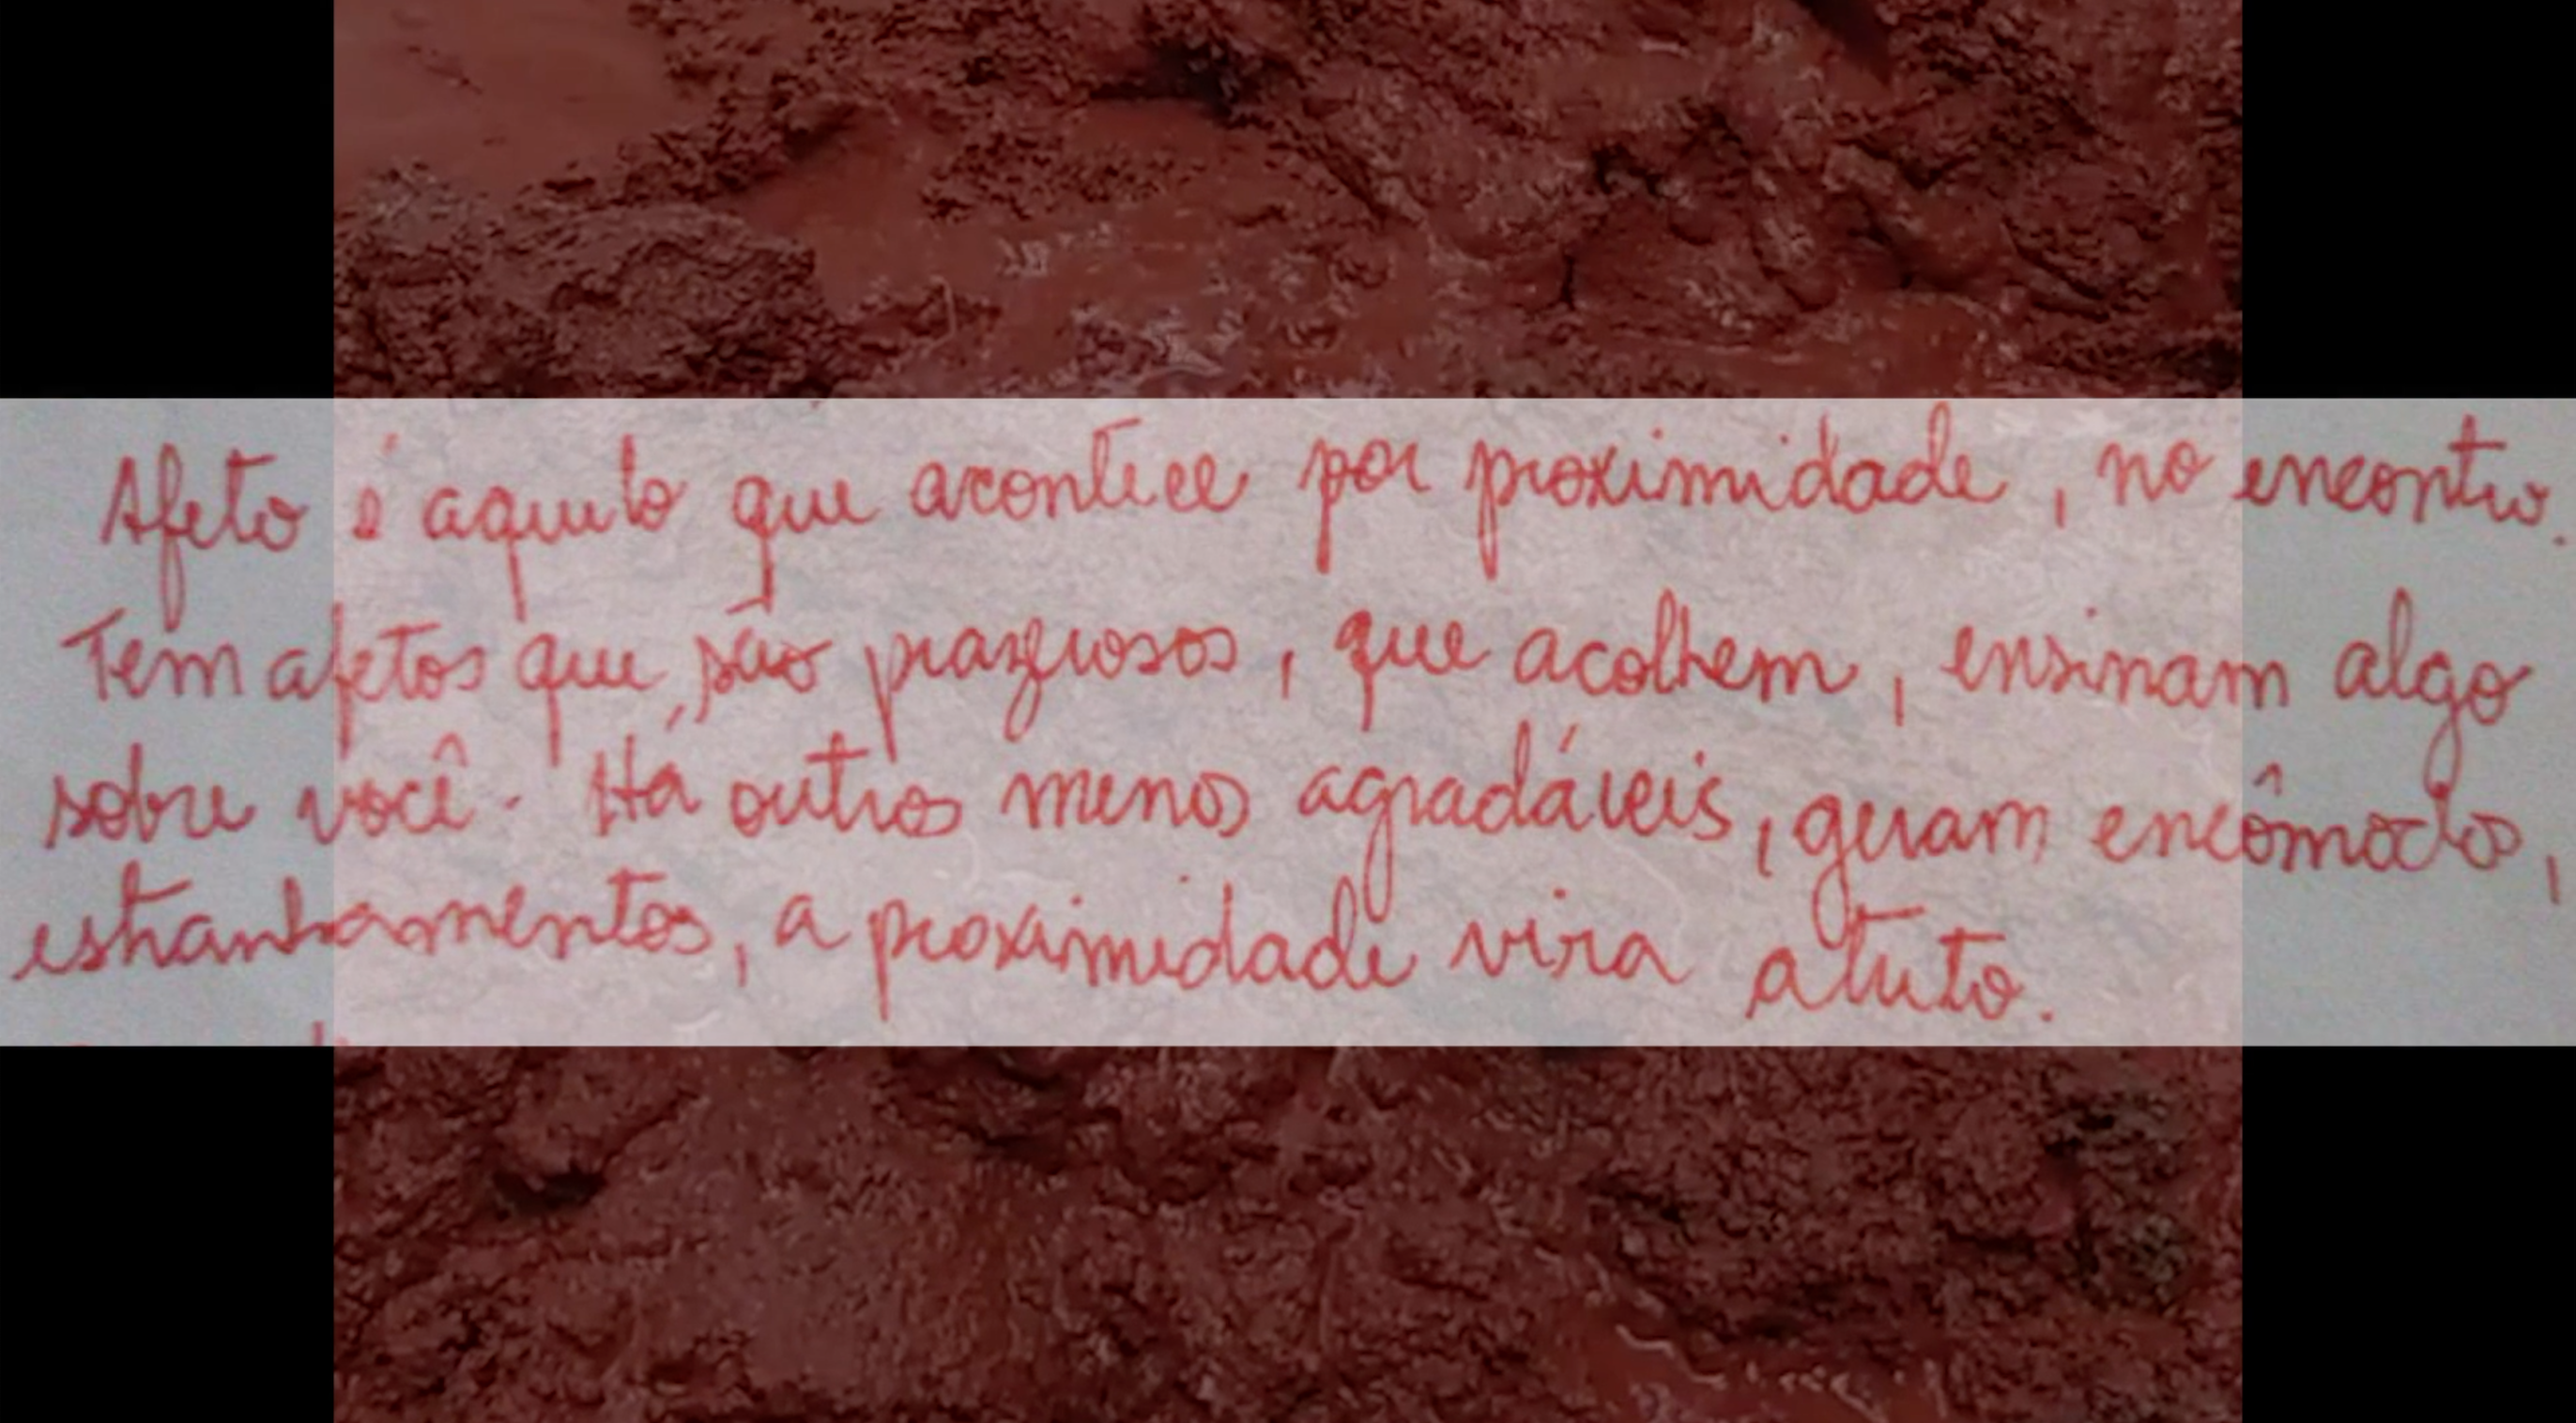 Afeto é aquilo que acontece por proximidade, no encontro.
Tem afetos que são prazerosos, que acolhem, ensinam algo
sobre você. Há outros menos agradáveis, geram encômodo,
estranhamentos, a proximidade vira atrito.